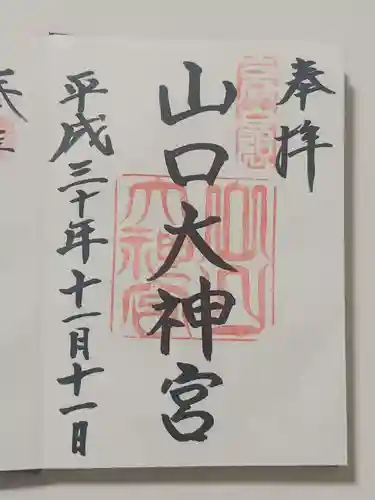 奉拝
山口大神宮
平成三十年十一月十一日
山口大神宮